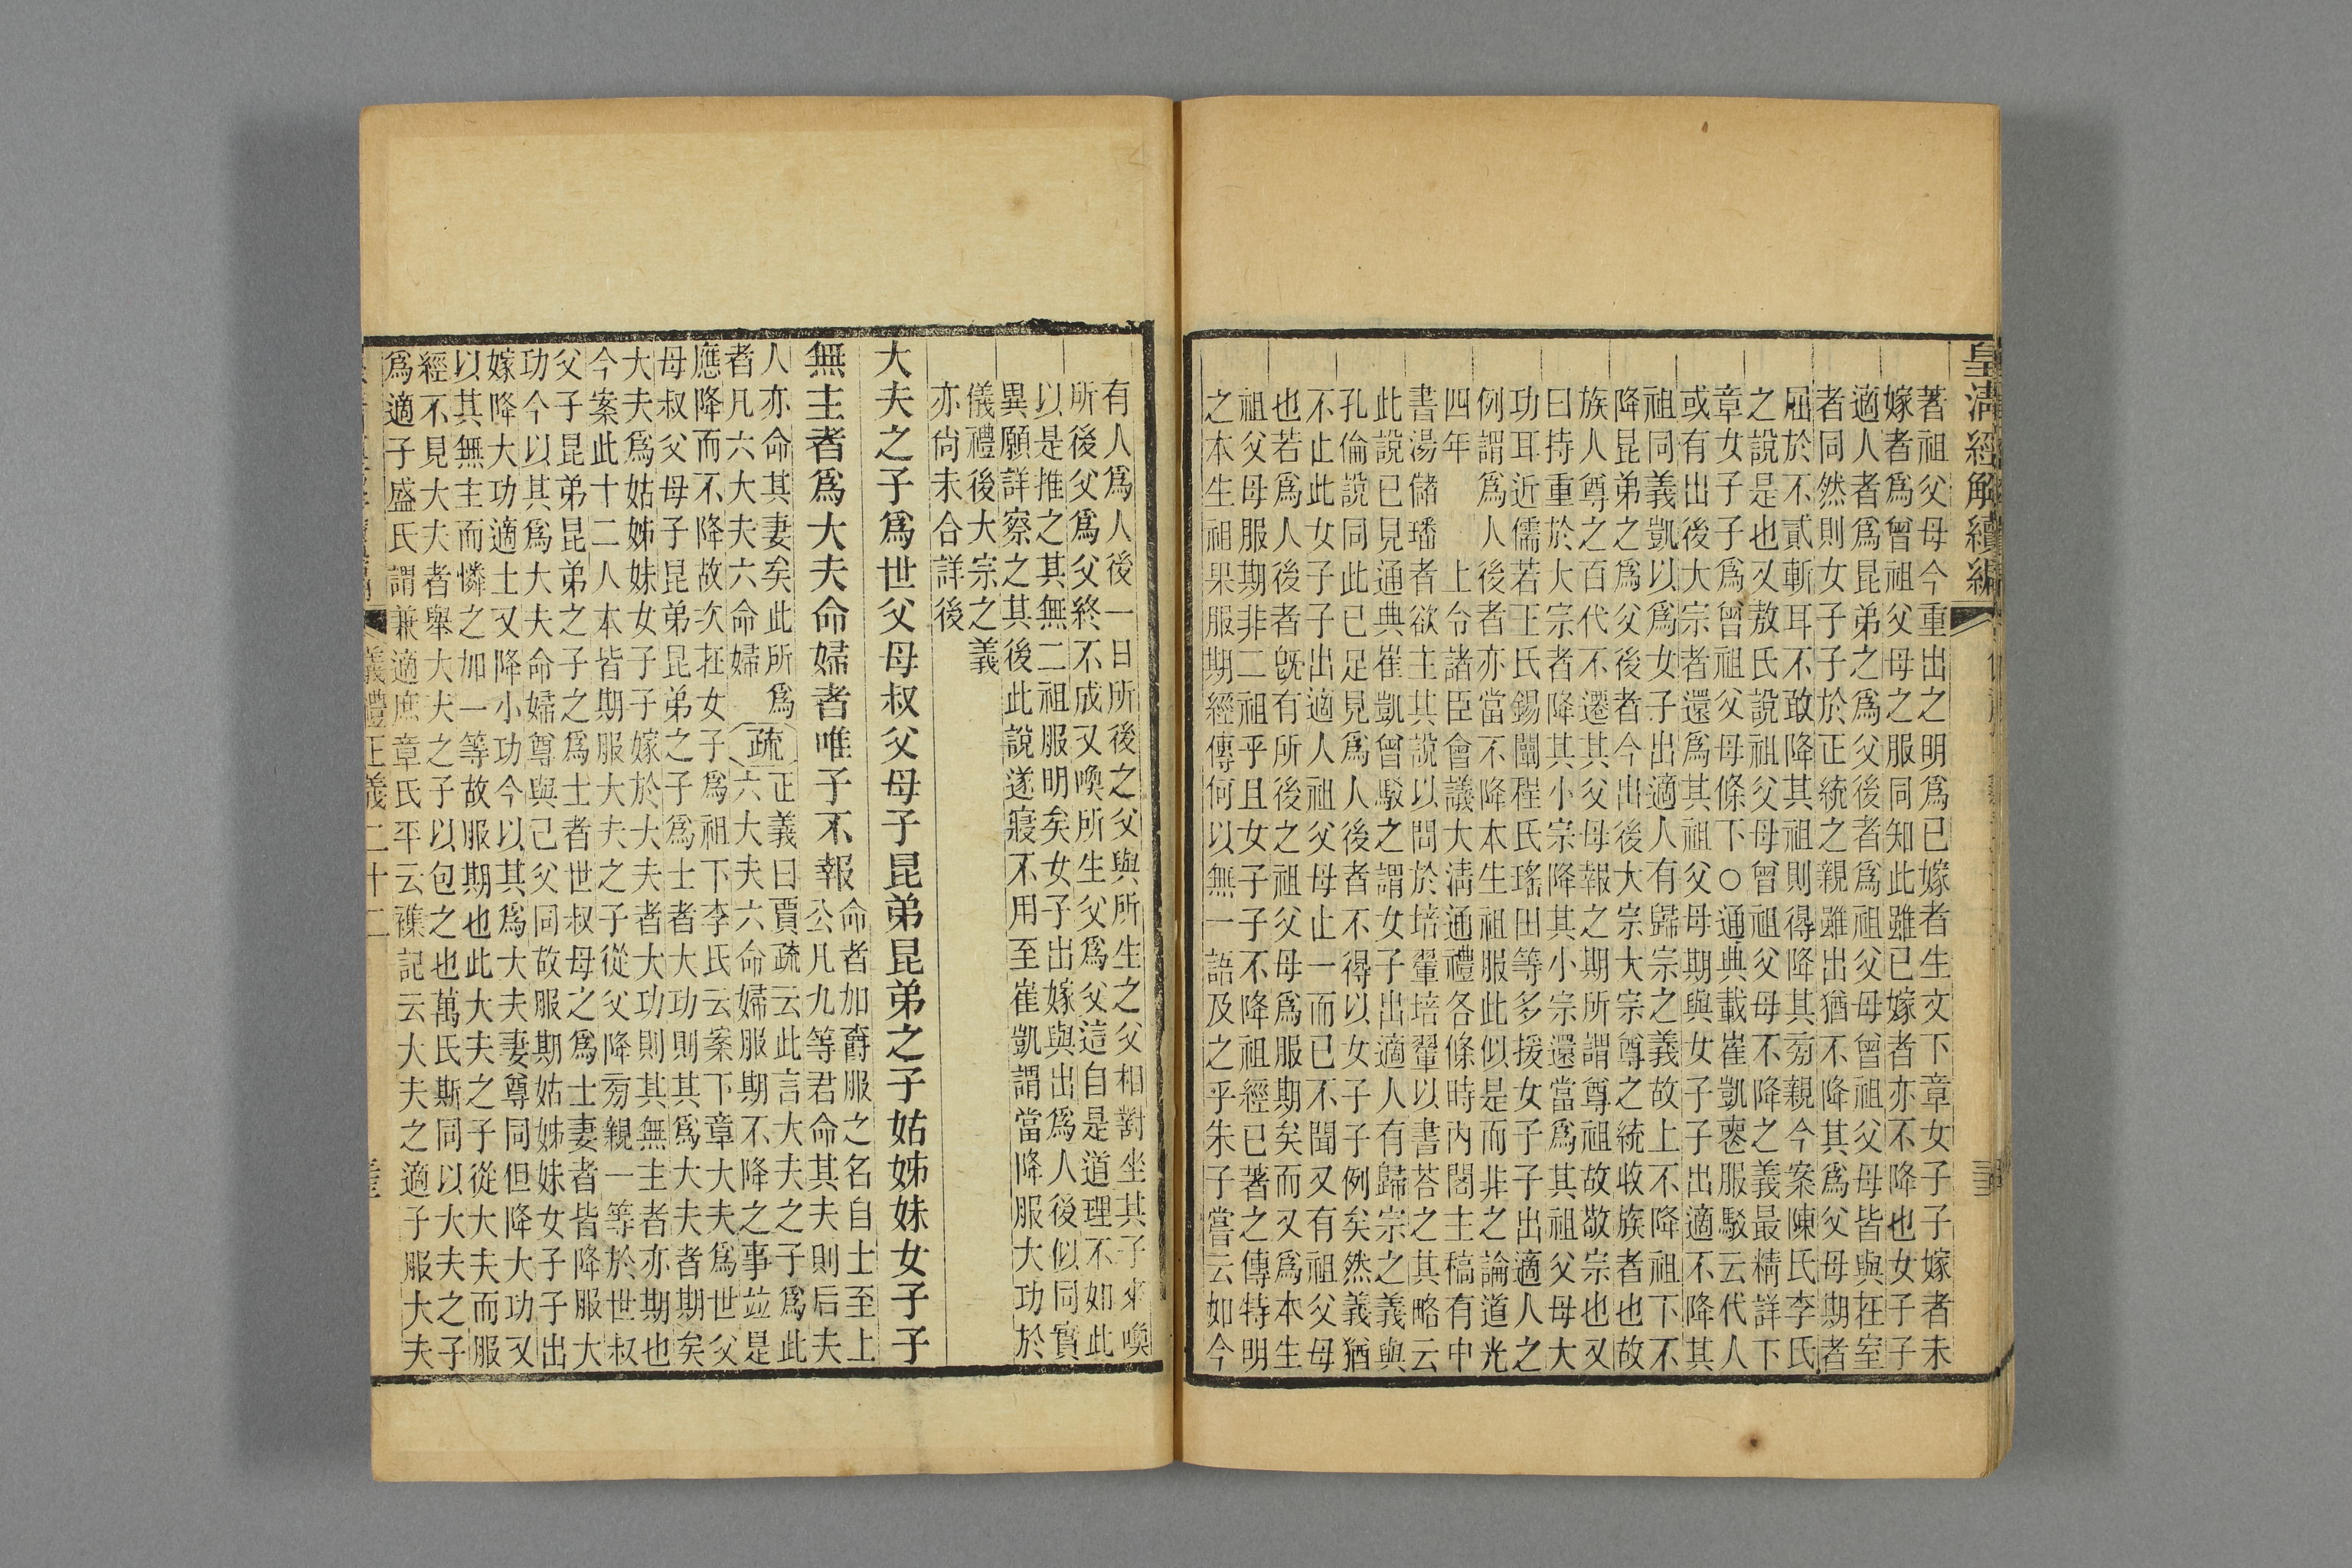 皇清經解續編
著祖父母今重出之明爲已嫁者生文下章女子子嫁者未
嫁者爲曾祖父母之服同知此雖已嫁者亦不降也女子子
適人者爲昆弟之爲父後者爲祖父母曾祖父母皆與在室
者同然則女子子於正統之親雖出猶不降其爲父母期者
屈於不貳斬耳不敢降其祖則得降其旁親今案陳氏李氏
之說是也又敖氏說祖父母曾祖父母不降之義最精詳下
章女子子爲曾祖父母條下○通典載崔凱喪服駁云代人
或有出後大宗者還爲其祖父母期與女子子出適不降其
祖同義凱以爲女子出適人有歸宗之義故上不降祖下不
降昆弟之爲父後者今出後大宗大宗尊之統收族者也故
族人尊之百代不遷其父母報之期所謂尊祖故敬宗也又
曰持重於大宗者降其小宗降其小宗還當爲其祖父母大
功耳近儒若王氏錫闡程氏瑤田等多援女子子出適人之
例謂爲人後者亦當不降本生祖服此似是而非之論道光
四年 上令諸臣會議大清通禮各條時內閣主稿有中
書湯儲璠者欲主其說以問於培翬培翬以書荅之其略云
此說已見通典崔凱曾駁之謂女子出適人有歸宗之義與
孔倫說同此已足見爲人後者不得以女子子例矣然義猶
不止此女子子出適人祖父母止一而已不聞又有祖父母
也若爲人後者旣有所後之祖父母爲服期矣而又爲本生
祖父母服期非二祖乎且女子子不降祖經已著之傳特明
之本生祖果服期經傳何以無一語及之乎朱子嘗云如今
有人爲人後一日所後之父與所生之父相對坐其子來喚
所後父爲父終不成又喚所生父爲父這自是道理不如此
以是推之其無二祖服明矣女子出嫁與出爲人後似同實
異願詳察之其後此說遂寢不用至崔凱謂當降服大功於
儀禮後大宗之義
亦尚未合詳後
大夫之子爲世父母叔父母子昆弟昆弟之子姑姊妹女子子
無主者爲大夫命婦者唯子不報
命者加爵服之名自士至上
公凡九等君命其夫則后夫
人亦命其妻矣此所爲
者凡六大夫六命婦
疏
正義曰賈疏云此言大夫之子爲此
六大夫六命婦服期不降之事竝是
應降而不降故次在女子爲祖下李氏云案下章大夫爲世父
母叔父母子昆弟昆弟之子爲士者大功則其爲大夫者期矣
大夫爲姑姊妹女子子嫁於大夫者大功則其無主者亦期也
今案此十二人本皆期服大夫之子從父降旁親一等於世叔
父子昆弟昆弟之子之爲士者世叔母之爲士妻者皆降服大
功今以其爲大夫命婦尊與己父同故服期姑姊妹女子子出
嫁降大功適士又降小功今以其爲大夫妻尊同但降大功又
以其無主而憐之加一等故服期也此大夫之子從大夫而服
經不見大夫者舉大夫之子以包之也萬氏斯同以大夫之子
爲適子盛氏謂兼適庶章氏平云襍記云大夫之適子服大夫
儀禮正義二十二